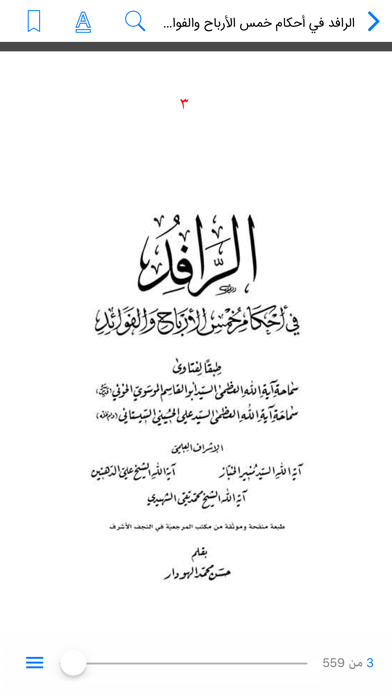 الرافد في أحكام خمس الأرباح والفوا...
٣
الرَّافِدُ
في أحكام خمس الأرباح والفوائد
طبقًا لفتاوى
سماحة آية الله العظمى السيد أبو القاسم الموسوي الخوئي
سماحة آية الله العظمى السيد علي الحسيني السيستاني
الإشراف العلمي
آية الله السيد منير الخباز آية الله الشيخ علي الدهنين
آية الله الشيخ محمد تقي الشهيدي
طبعة منقحة وموثقة من مكتب المرجعية في النجف الأشرف
بقلم
حسن محمد الهودار
3 من 559